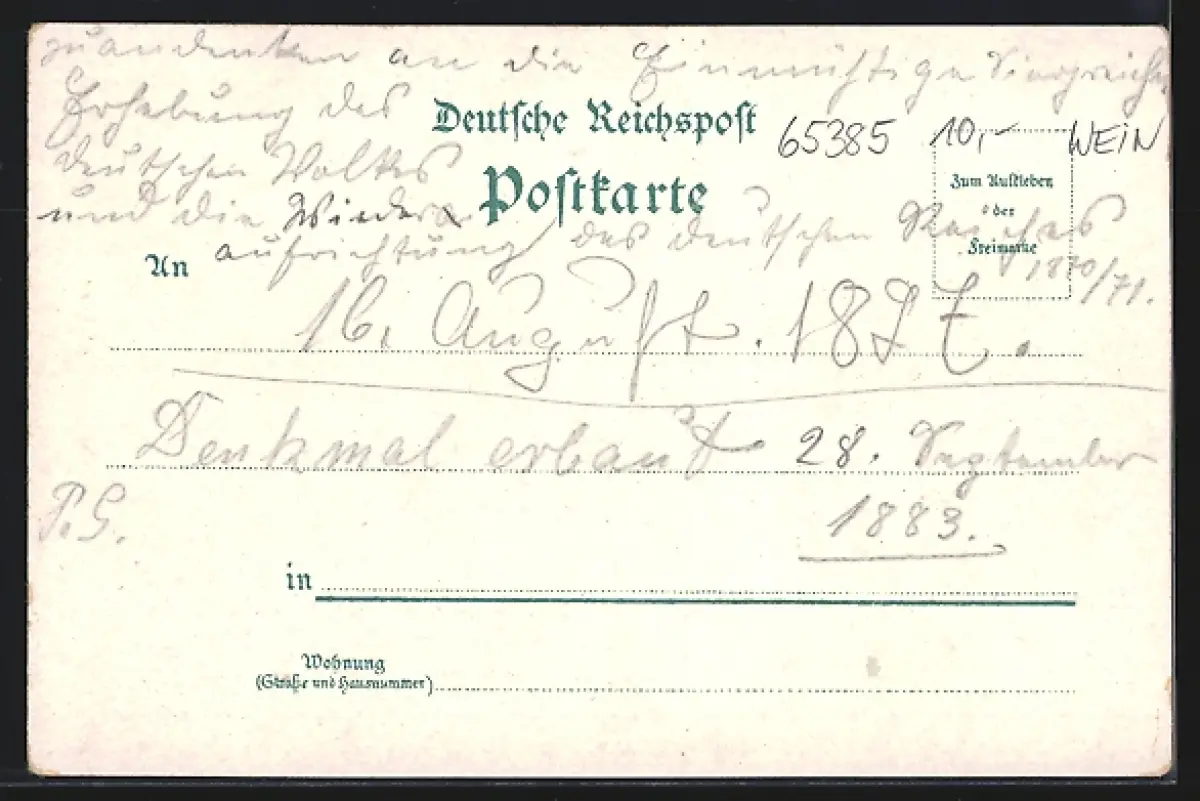 zuandenken an die Einmüthige Siegreiche
Erhebung des
Deutsche Reichspost
65385 10,- WEIN
deutschen Volkes
Postkarte
Zum Aufkleben
der
Freimarke
und die Wieder
aufrichtung des deutschen Reiches
1870/71.
An
16. August. 1877.
Denkmal erbaut 28. September
1883.
P.G.
in
Wohnung
(Straße und Hausnummer)